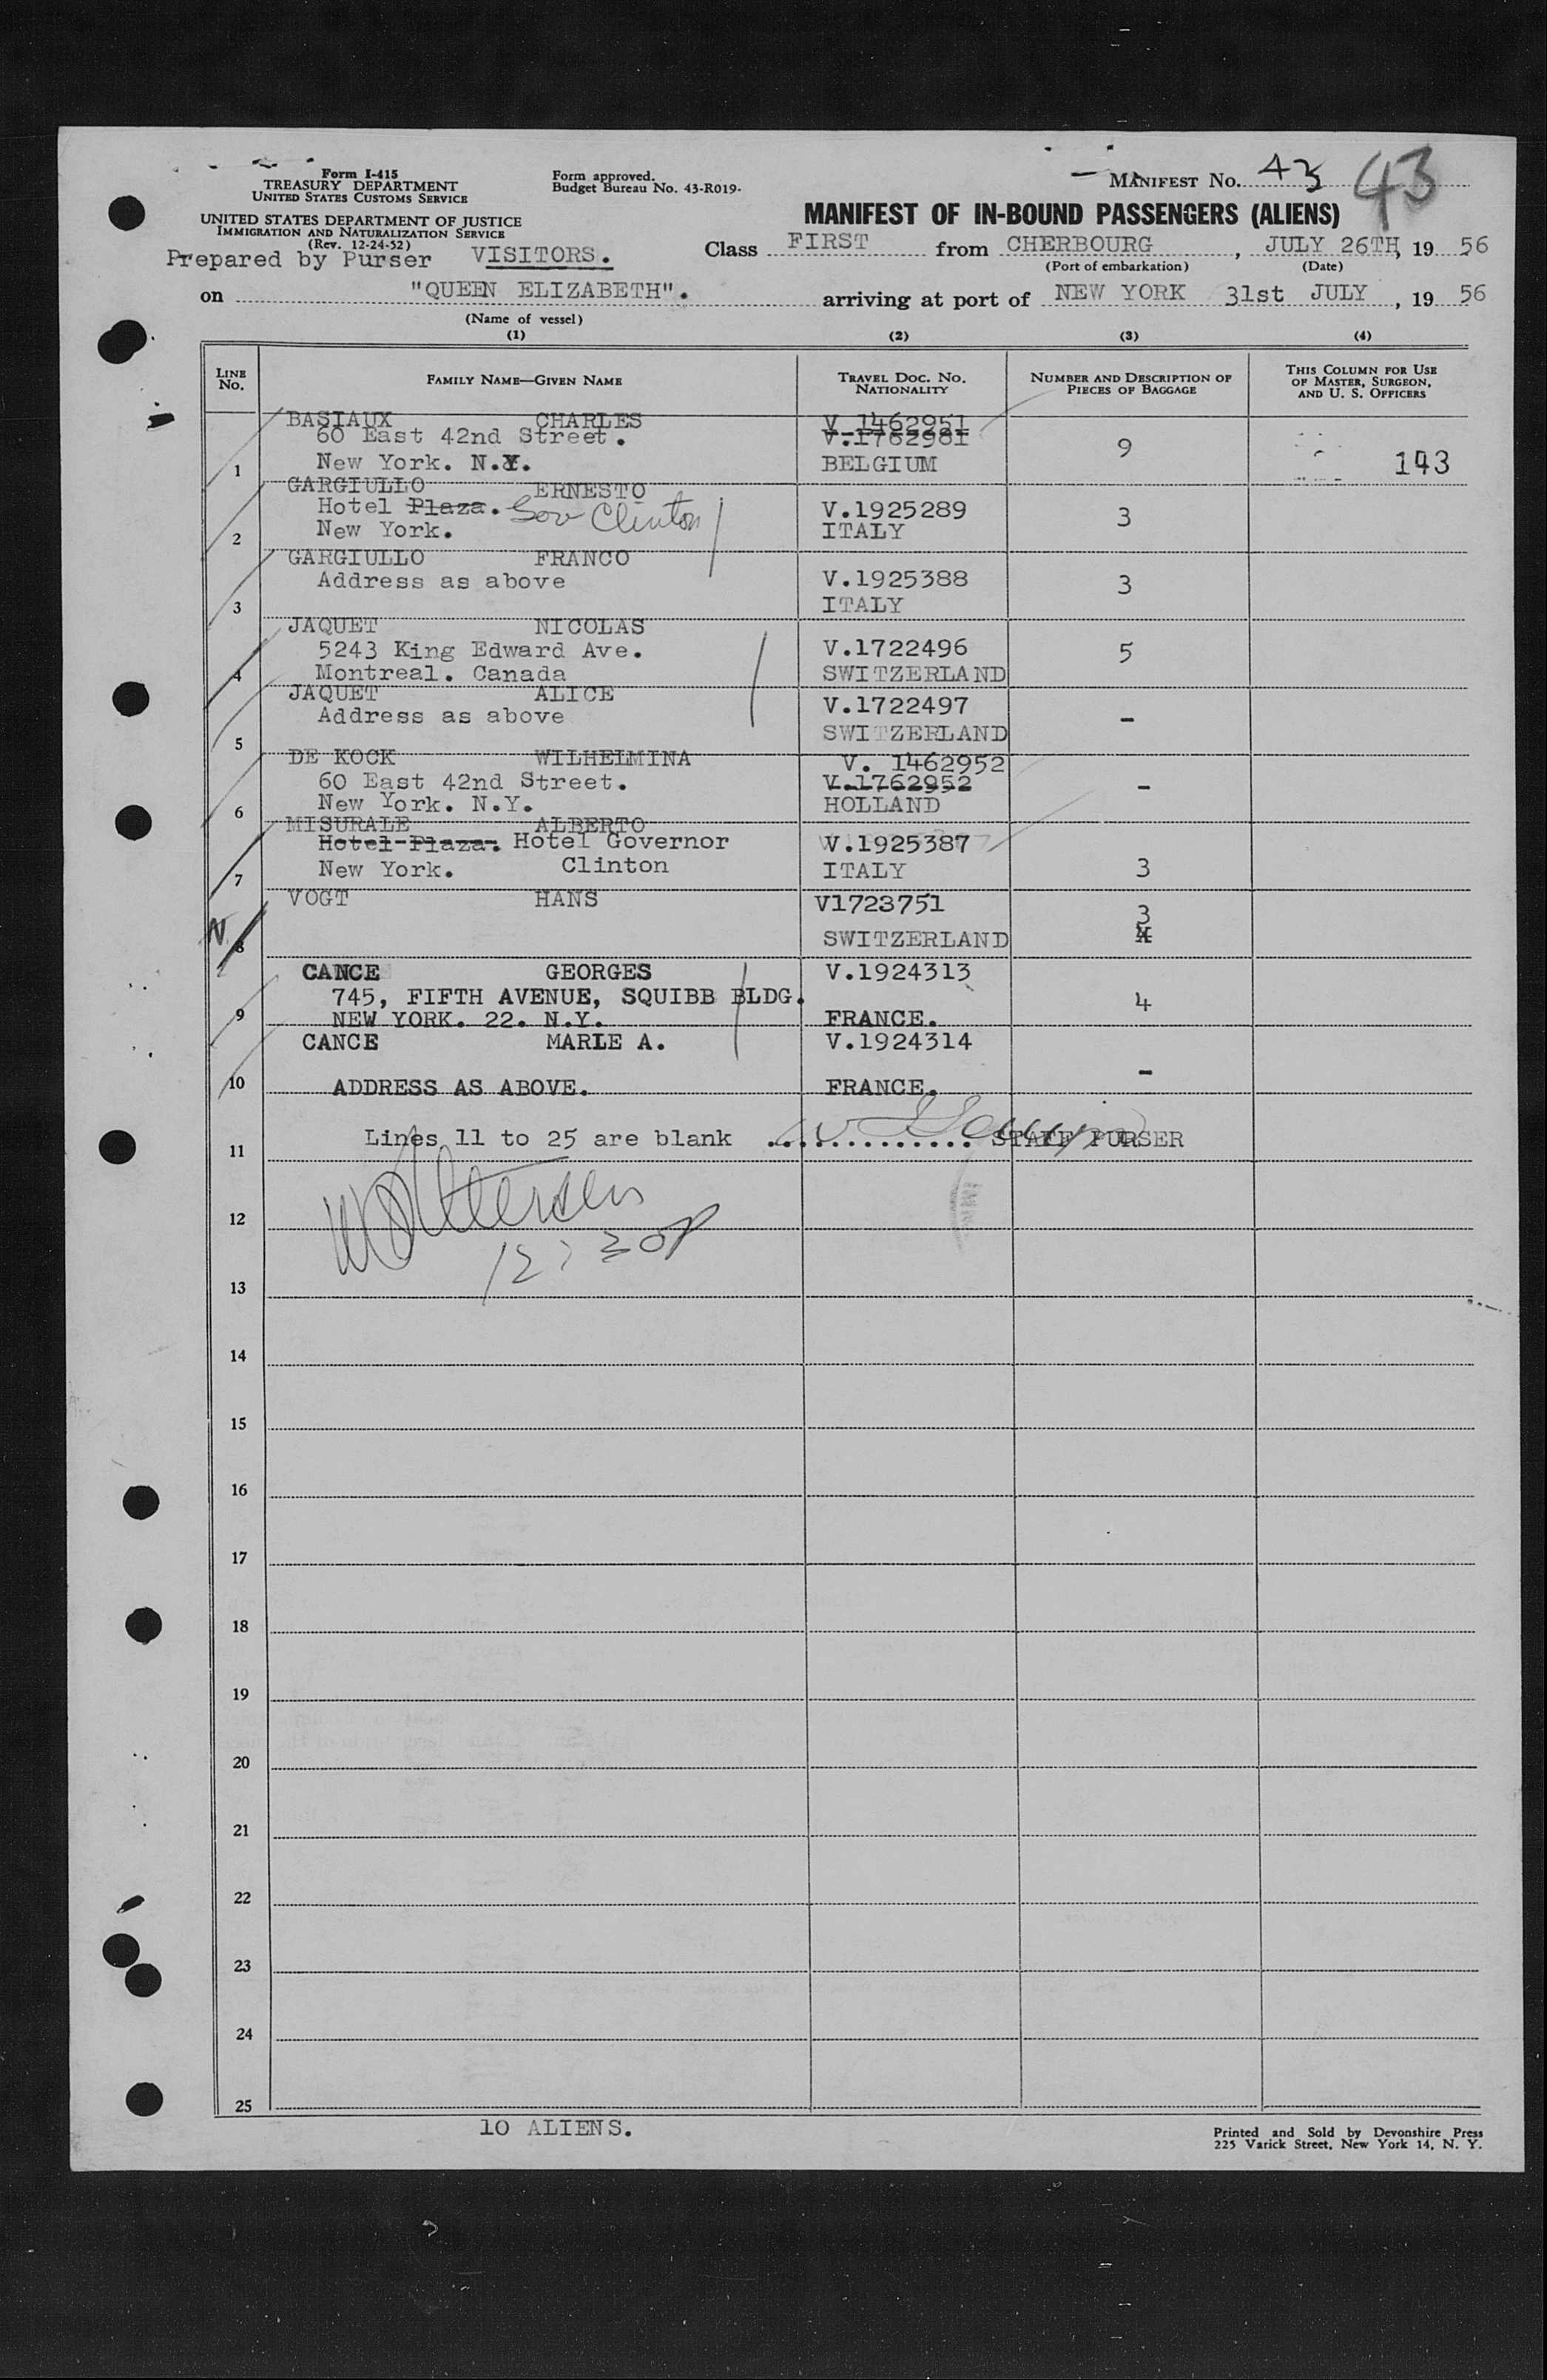 Form I-415
TREASURY DEPARTMENT
UNITED STATES CUSTOMS SERVICE
UNITED STATES DEPARTMENT OF JUSTICE
IMMIGRATION AND NATURALIZATION SERVICE
(Rev. 12-24-52)
Form approved.
Budget Bureau No. 43-R019-
MANIFEST No. 43 43
MANIFEST OF IN-BOUND PASSENGERS (ALIENS)
Prepared by Purser VISITORS. Class FIRST from CHERBOURG, JULY 26TH, 19 56
(Port of embarkation) (Date)
on "QUEEN ELIZABETH". arriving at port of NEW YORK 31st JULY, 19 56
(Name of vessel)
(1) (2) (3) (4)
LINE No. FAMILY NAME—GIVEN NAME TRAVEL DOC. No. NATIONALITY NUMBER AND DESCRIPTION OF PIECES OF BAGGAGE THIS COLUMN FOR USE OF MASTER, SURGEON, AND U. S. OFFICERS
BASIAUX CHARLES V 1462951
60 East 42nd Street. V.1762981
1 New York. N.Y. BELGIUM 9 143
GARGIULLO ERNESTO
Hotel Plaza. Gov Clinton V.1925289 3
2 New York. ITALY
GARGIULLO FRANCO
Address as above V.1925388 3
3 ITALY
JAQUET NICOLAS
5243 King Edward Ave. V.1722496 5
4 Montreal. Canada SWITZERLAND
JAQUET ALICE V.1722497
Address as above -
5 SWITZERLAND
DE KOCK WILHELMINA V. 1462952
60 East 42nd Street. V.1762952 -
6 New York. N.Y. HOLLAND
MISURALE ALBERTO
Hotel Plaza. Hotel Governor V.1925387
7 New York. Clinton ITALY 3
VOGT HANS V1723751 3
N 8 SWITZERLAND 4
CANCE GEORGES V.1924313
745, FIFTH AVENUE, SQUIBB BLDG. 4
9 NEW YORK. 22. N.Y. FRANCE.
CANCE MARIE A. V.1924314
10 ADDRESS AS ABOVE. FRANCE. -
11 Lines 11 to 25 are blank .............. STAFF PURSER
12
12:30P
13
14
15
16
17
18
19
20
21
22
23
24
25
10 ALIENS.
Printed and Sold by Devonshire Press
225 Varick Street, New York 14, N. Y.